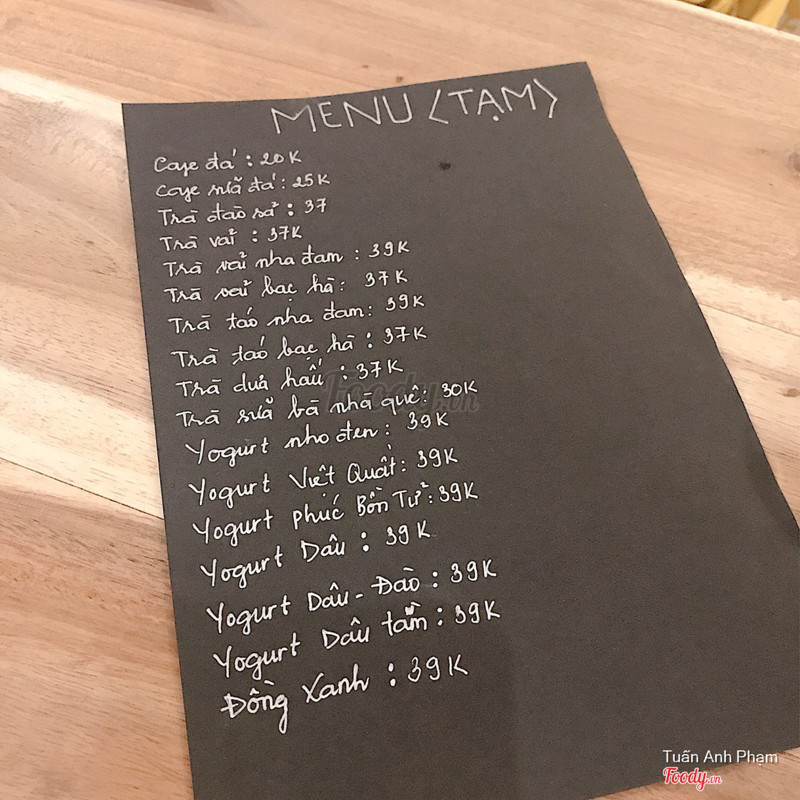 MENU (TẠM)
Cafe đá : 20K
Cafe sữa đá : 25K
Trà đào sả : 37
Trà vải : 37K
Trà vải nha đam : 39K
Trà vải bạc hà : 37K
Trà táo nha đam : 39K
Trà táo bạc hà : 37K
Trà dưa hấu : 37K
Trà sữa bà nhà quê : 30K
Yogurt nho đen : 39K
Yogurt Việt Quất : 39K
Yogurt Phúc Bồn Tử : 39K
Yogurt Dâu : 39K
Yogurt Dâu - Đào : 39K
Yogurt Dâu tằm : 39K
Đồng Xanh : 39K
Foody.vn
Tuấn Anh Phạm
Foody.vn